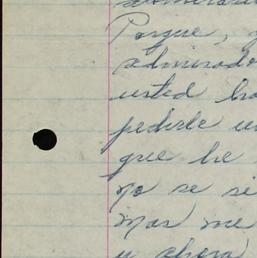 Porque,
admirado
usted ha
pedirle un
que he
no se si
mas me
y ahora